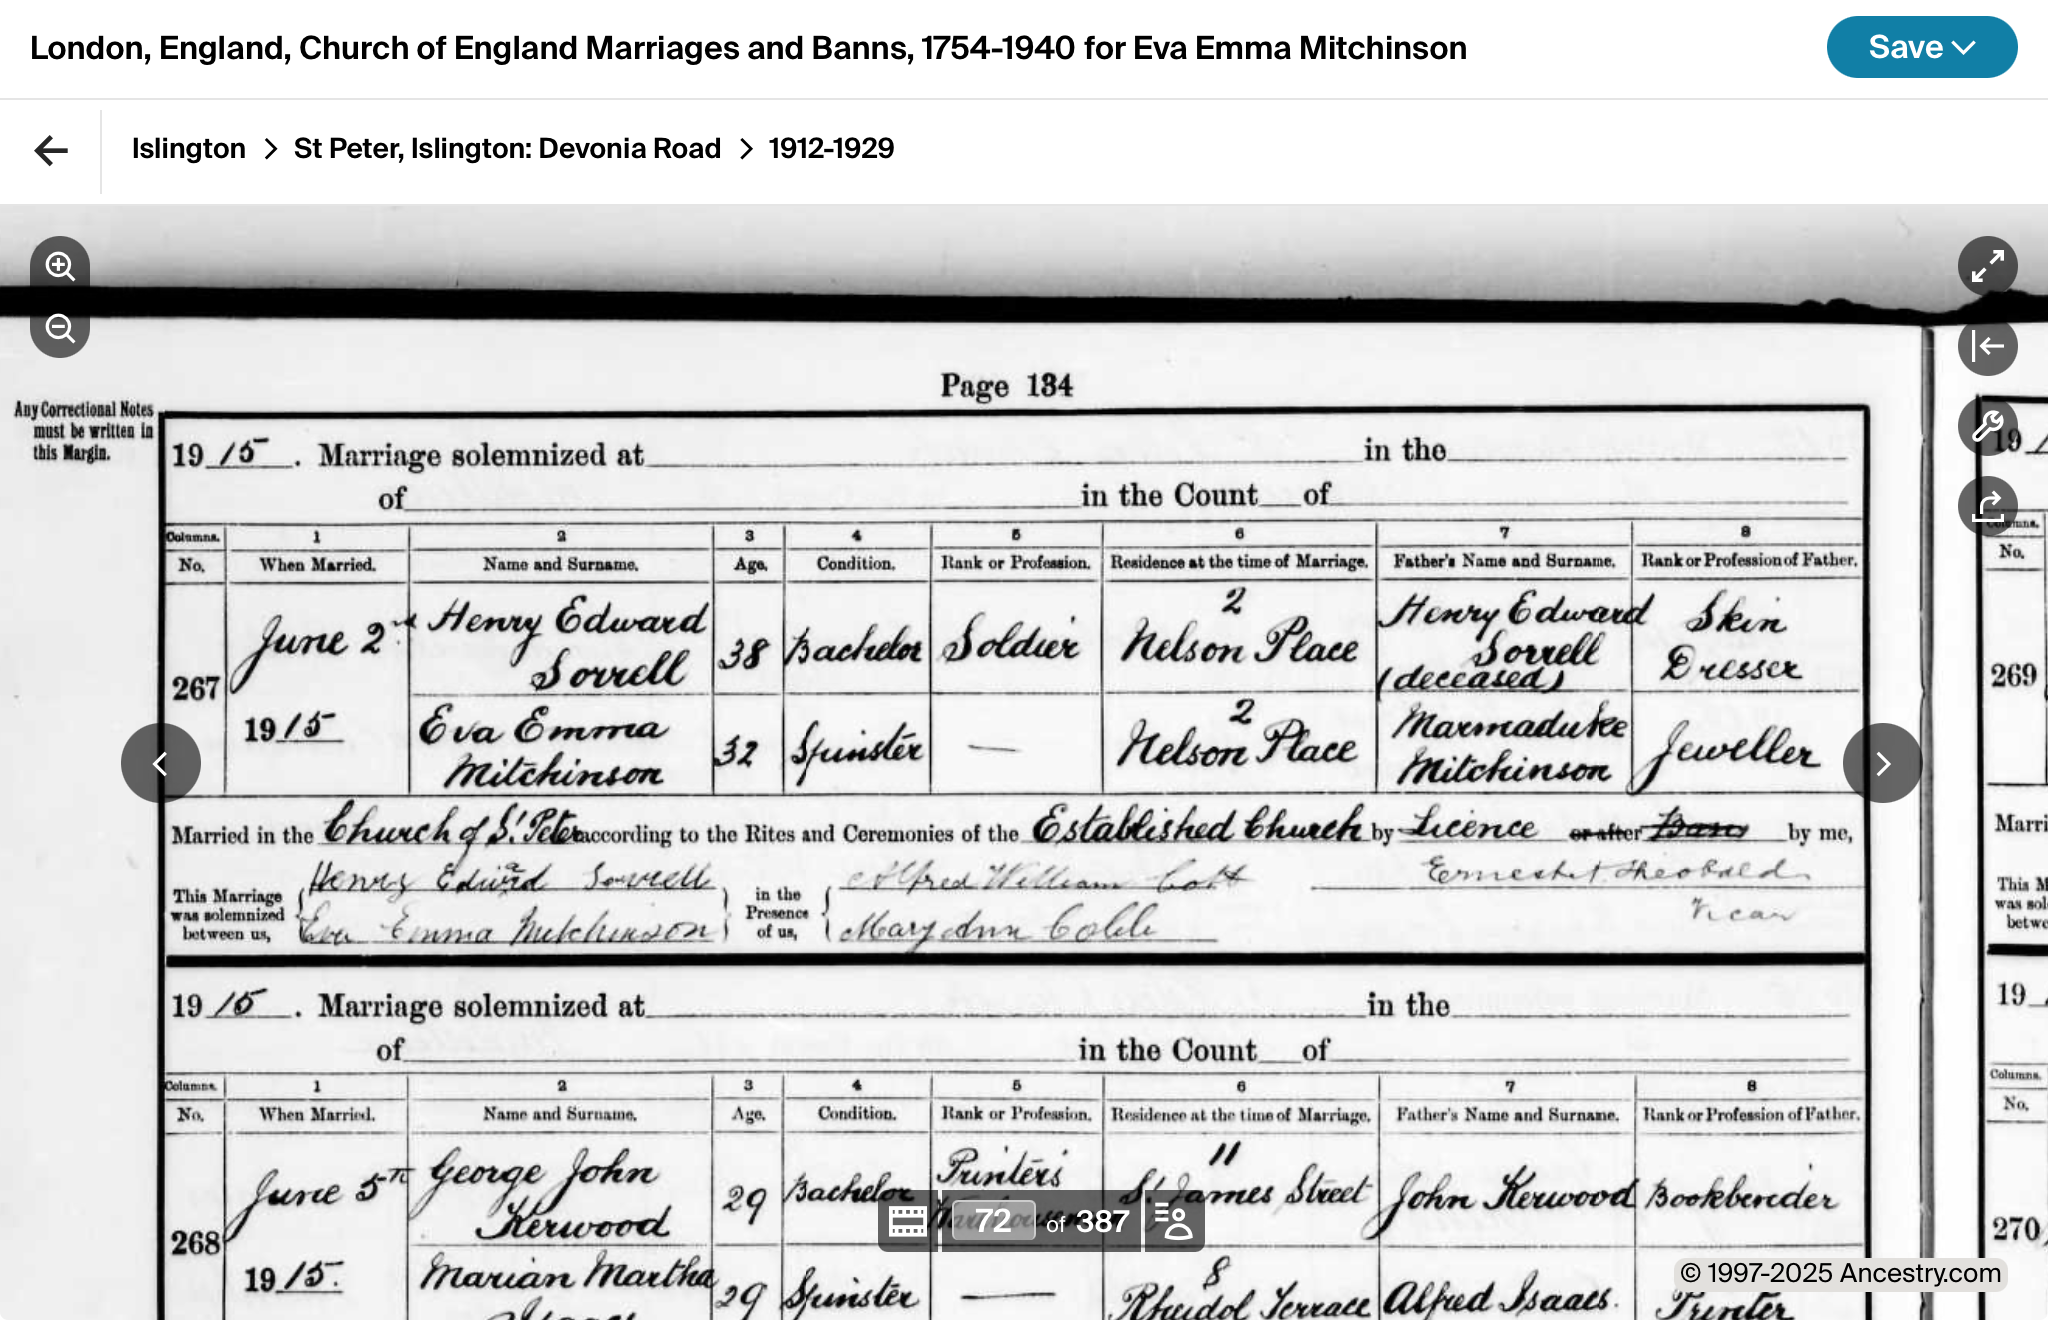 London, England, Church of England Marriages and Banns, 1754-1940 for Eva Emma Mitchinson
Save
Islington > St Peter, Islington: Devonia Road > 1912-1929
Page 134
Any Correctional Notes
must be written in
this Margin.
19 15 . Marriage solemnized at in the
of in the Count of
Columns. 1 2 3 4 5 6 7 8
No. When Married. Name and Surname. Age. Condition. Rank or Profession. Residence at the time of Marriage. Father's Name and Surname. Rank or Profession of Father.
267 June 2nd 1915
Henry Edward
Sorrell
38 Bachelor Soldier
2
Nelson Place
Henry Edward
Sorrell
(deceased)
Skin
Dresser
Eva Emma
Mitchinson
32 Spinster —
2
Nelson Place
Marmaduke
Mitchinson
Jeweller
Married in the Church of St Peter according to the Rites and Ceremonies of the Established Church by Licence or after Banns by me,
This Marriage
was solemnized
between us,
Henry Edward Sorrell
Eva Emma Mitchinson
in the
Presence
of us,
Alfred William
Mary Ann
Ernest Theobald
Vicar
19 15 . Marriage solemnized at in the
of in the Count of
Columns. 1 2 3 4 5 6 7 8
No. When Married. Name and Surname. Age. Condition. Rank or Profession. Residence at the time of Marriage. Father's Name and Surname. Rank or Profession of Father.
268 June 5th 1915.
George John
Kerwood
29 Bachelor
Printers'
11
St James Street
John Kerwood
Bookbinder
Marian Martha
Isaacs
29 Spinster —
8
Rheidol Terrace
Alfred Isaacs.
Printer
19
Columns.
No.
269
Marri
This M
was sol
betwe
19
Columns.
No.
270
72 of 387
© 1997-2025 Ancestry.com